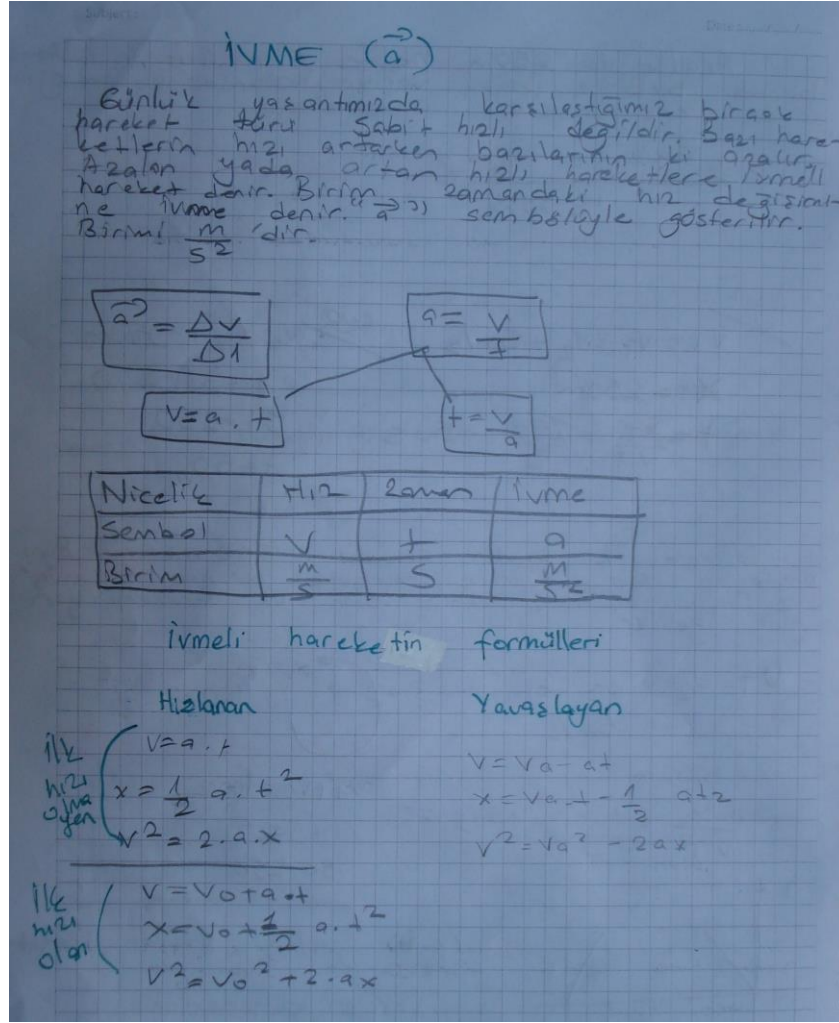 İVME (a⃗)
Günlük yaşantımızda karşılaştığımız birçok
hareket türü sabit hızlı değildir. Bazı hare-
ketlerin hızı artarken bazılarının ki azalır.
Azalan yada artan hızlı hareketlere ivmeli
hareket denir. Birim zamandaki hız değişimi-
ne ivme denir. "a⃗" sembolüyle gösterilir.
Birimi m/s² 'dir.
a⃗ = Δv/Δt
a = v/t
v = a . t
t = v/a
Nicelik Hız Zaman İvme
Sembol V t a
Birim m/s S m/s²
İvmeli hareketin formülleri
Hızlanan
Yavaşlayan
ilk hızı olmayan
v = a . t
x = 1/2 a . t²
v² = 2 . a . x
v = va - at
x = va . t - 1/2 at2
v² = va² - 2ax
ilk hızı olan
v = vo + a . t
x = vo + 1/2 a . t²
v² = vo² + 2 . ax